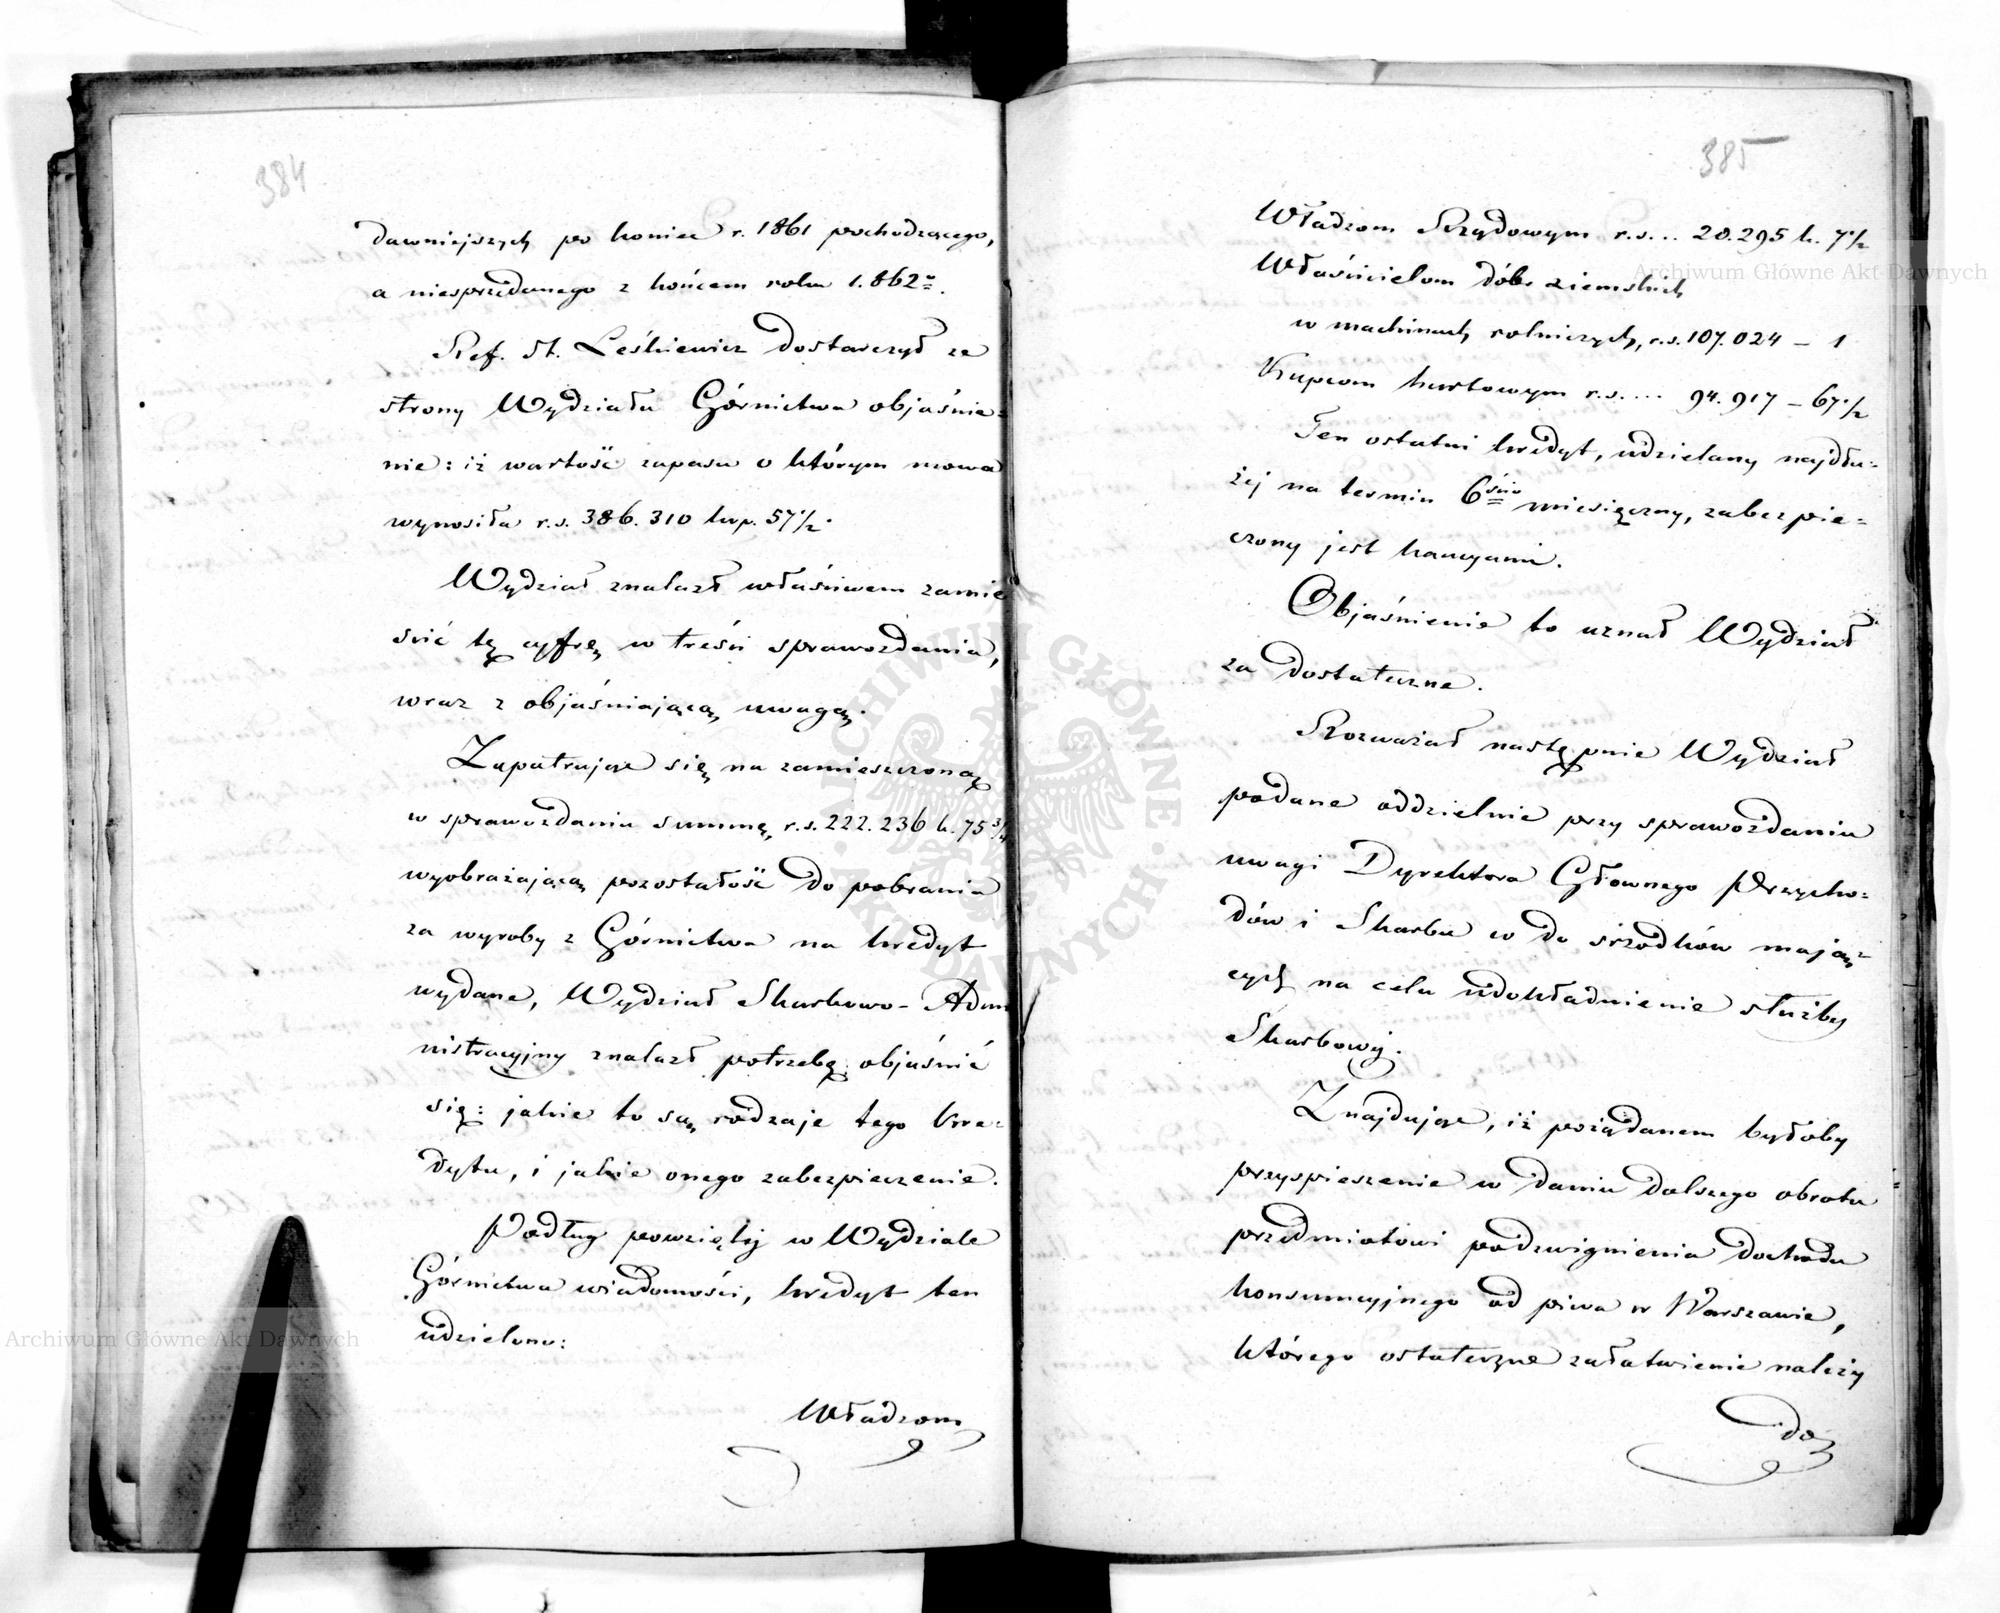 384
dawniejszych po koniec r. 1861 pochodzącego,
a niesprzedanego z końcem roku 1.862=.
Ref. St. Leśkiewicz dostarczył ze
strony Wydziału Górnictwa objaśnie=
nie: iż wartość zapasu o którym mowa
wynosiła r.s. 386.310 kop. 57 1/2.
Wydział znalazł właściwem zamie
ścić tę cyfrę w treści sprawozdania,
wraz z objaśniającą uwagą.
Zapatrując się na zamieszczoną
w sprawozdaniu summę, r.s. 222.236 k. 75 3/4
wyobrażającą pozostałość do pobrania
za wyroby z Górnictwa na kredyt
wydane, Wydział Skarbowo-Admi
nistracyjny znalazł potrzebę objaśnić
się: jakie to są rodzaje tego kre=
dytu, i jakie onego zabezpieczenie.
Podług powziętej w Wydziale
Górnictwa wiadomości, kredyt ten
udzielono:
Władzom
385
Władzom Rządowym r.s... 20.295 k. 7 1/2
Właścicielom dóbr ziemskich
w machinach rolniczych, r.s. 107.024 – 1
Kupcom hurtowym r.s.... 94.917 – 67 1/2
Ten ostatni kredyt, udzielany najdłu=
żej na termin 6ścio miesięczny, zabezpie=
czony jest kaucyami.
Objaśnienie to uznał Wydział
za dostateczne.
Rozważał następnie Wydział
podane oddzielnie przy sprawozdaniu
uwagi Dyrektora Głownego Przycho=
dów i Skarbu co do śrzodków mają=
cych na celu udokładnienie służby
Skarbowej.
Znajdując, iż pożądanem byłoby
przyspieszenie w daniu dalszego obrotu
przedmiotowi podzwignienia dochodu
konsumcyjnego od piwa w Warszawie,
którego ostateczne załatwienie należy
do
Archiwum Główne Akt Dawnych
Archiwum Główne Akt Dawnych
ARCHIWUM GŁÓWNE · AKT DAWNYCH ·